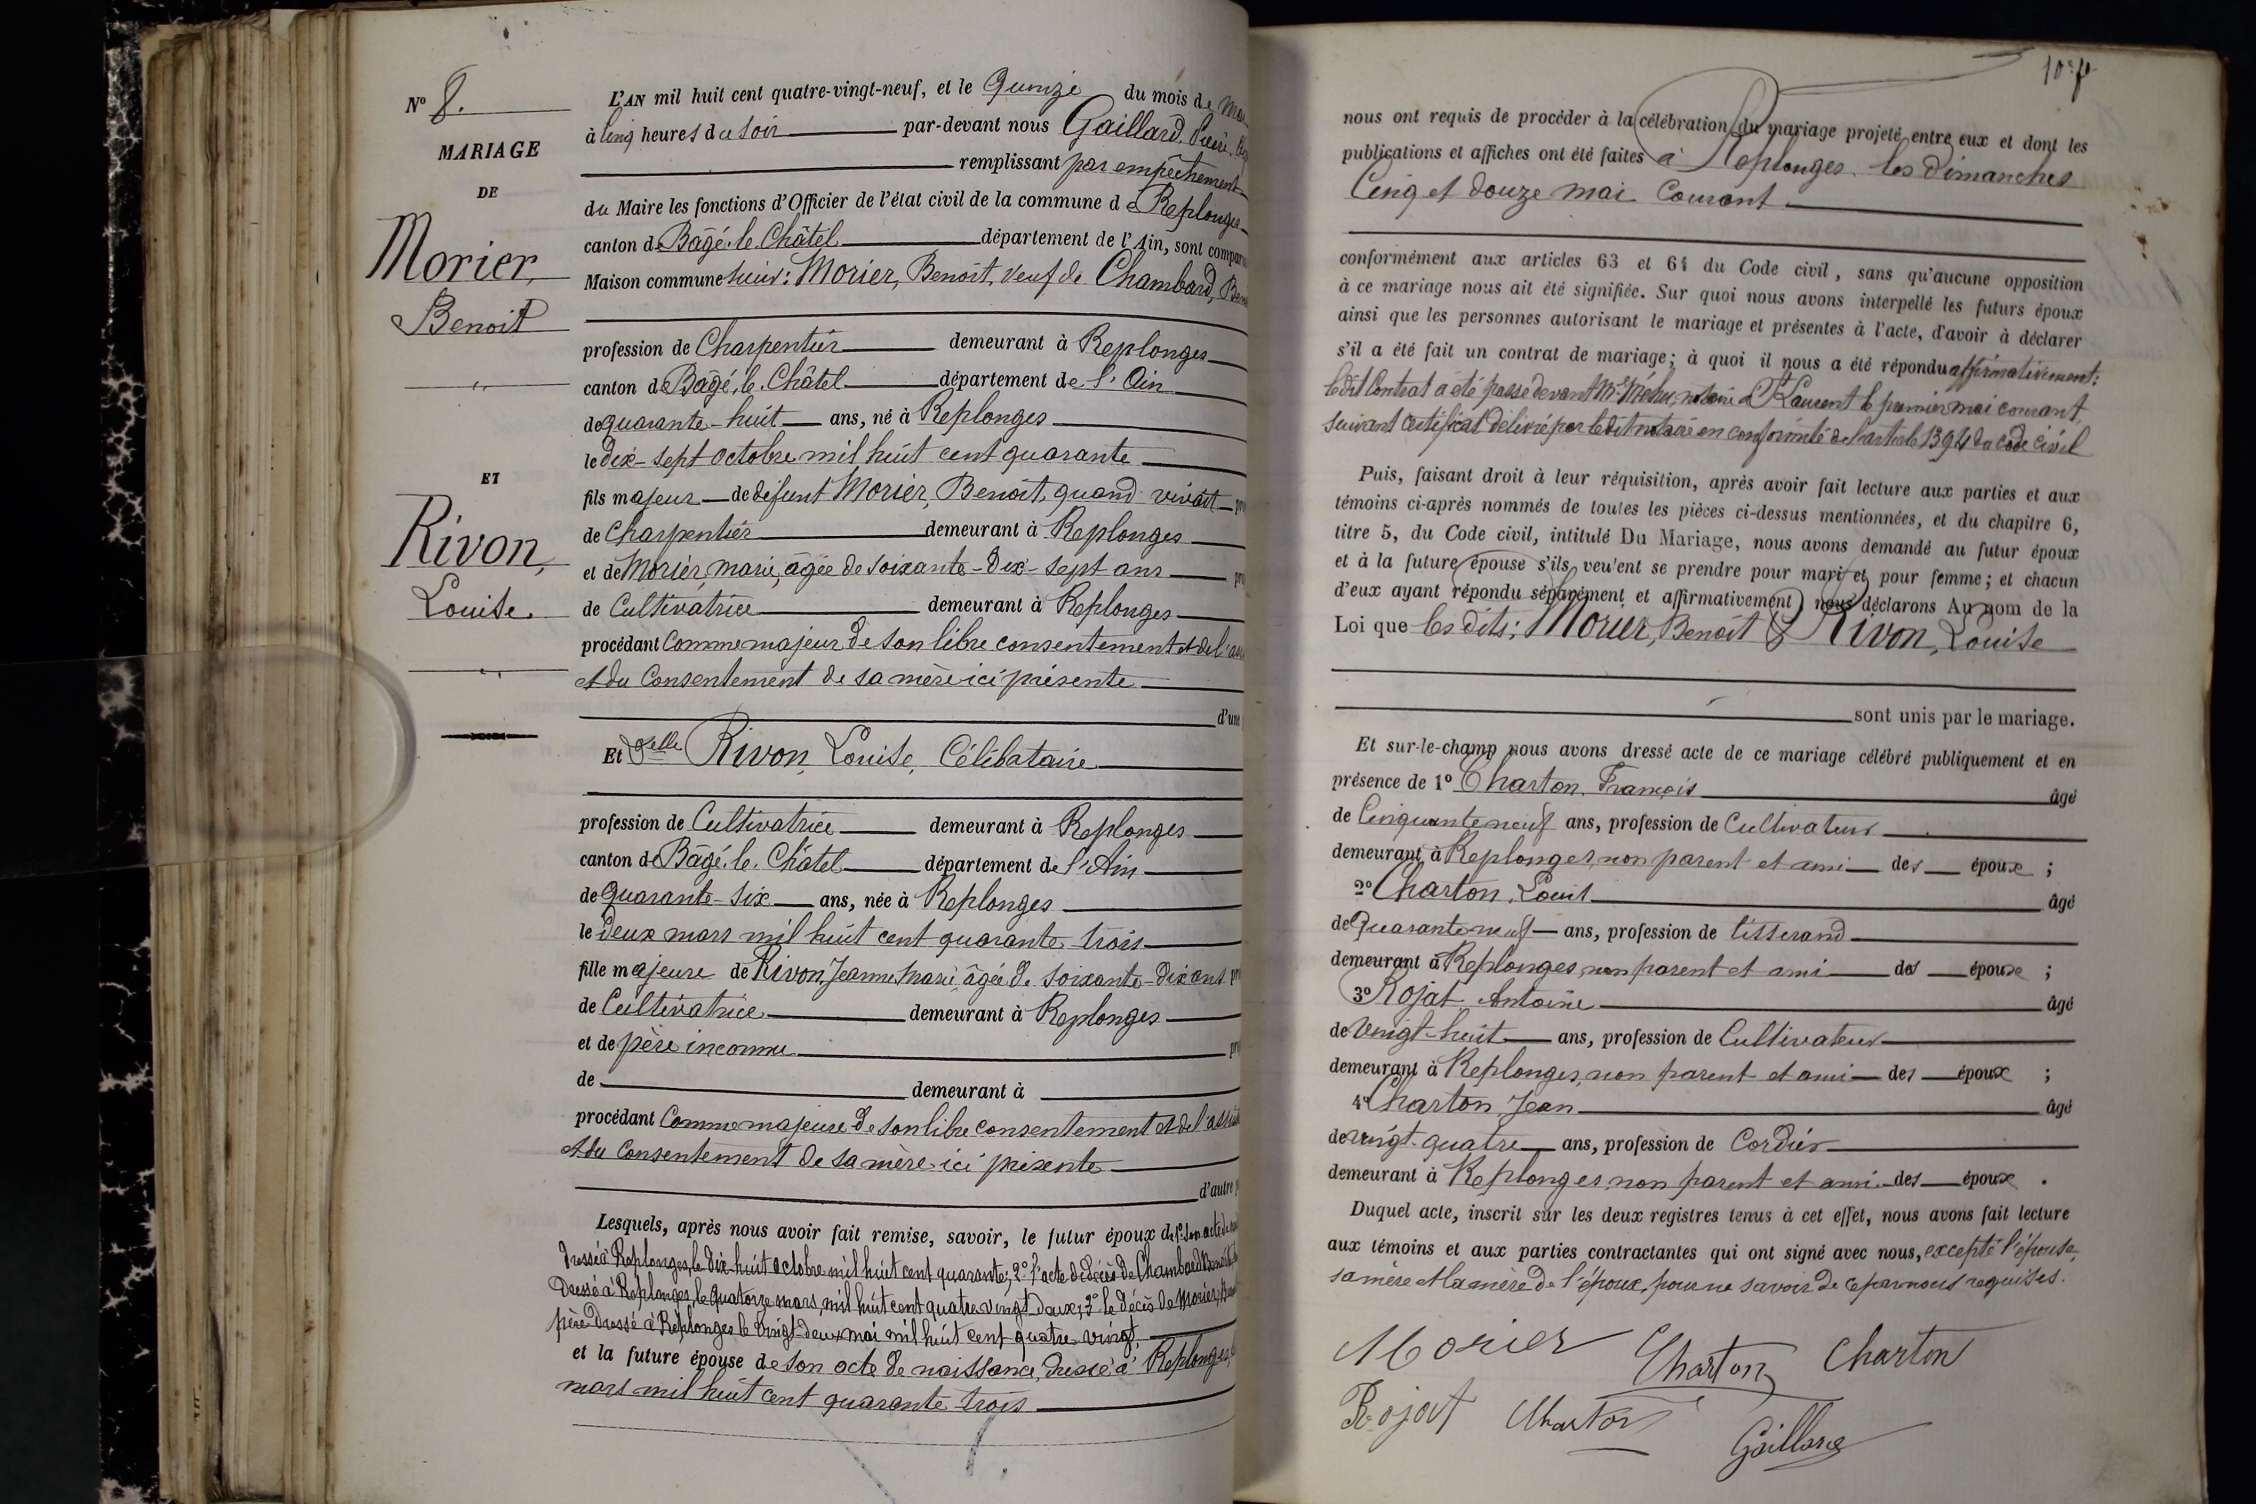 N° 8.
MARIAGE
DE
Morier,
Benoit
ET
Rivon,
Louise
L'AN mil huit cent quatre-vingt-neuf, et le Quinze du mois de
à Cinq heures du soir par-devant nous Gaillard, Pierre,
remplissant par empêchement
du Maire les fonctions d'Officier de l'état civil de la commune de Replonges
canton de Bâgé-le-Châtel département de l'Ain, sont
Maison commune Morier, Benoît, veuf de Chambard,
profession de Charpentier demeurant à Replonges
canton de Bâgé-le-Châtel département de l'Ain
de quarante-huit ans, né à Replonges
le dix-sept octobre mil huit cent quarante
fils majeur de défunt Morier, Benoît, quand vivait
de Charpentier demeurant à Replonges
et de Morier, marie, âgée de soixante-dix-sept ans
de Cultivatrice demeurant à Replonges
procédant Comme majeur de son libre consentement et de l'
et du Consentement de sa mère ici présente
d'une
Et Delle Rivon, Louise, Célibataire
profession de Cultivatrice demeurant à Replonges
canton de Bâgé-le-Châtel département de l'Ain
de Quarante-six ans, née à Replonges
le deux mars mil huit cent quarante trois
fille majeure de Rivon, Jeanne Marie, âgée de soixante-dix ans
de Cultivatrice demeurant à Replonges
et de père inconnu
de demeurant à
procédant Comme majeure de son libre consentement et de l'
et du Consentement de sa mère ici présente
d'autre
Lesquels, après nous avoir fait remise, savoir, le futur époux de 1° Son acte de
dressé à Replonges, le dix-huit octobre mil huit cent quarante; 2° l'acte de décès de Chambard
Dressé à Replonges, le quatorze mars, mil huit cent quatre vingt-deux; 3° le décès de Morier,
père dressé à Replonges le vingt-deux mai mil huit cent quatre-vingt,
et la future épouse de son acte de naissance, dressé à Replonges,
mars mil huit cent quarante trois
nous ont requis de procéder à la célébration du mariage projeté entre eux et dont les
publications et affiches ont été faites à Replonges les Dimanches
Cinq et douze mai Courant
conformément aux articles 63 et 64 du Code civil, sans qu'aucune opposition
à ce mariage nous ait été signifiée. Sur quoi nous avons interpellé les futurs époux
ainsi que les personnes autorisant le mariage et présentes à l'acte, d'avoir à déclarer
s'il a été fait un contrat de mariage; à quoi il nous a été répondu affirmativement:
ledit Contrat a été passé devant Me Méhu, notaire à St Laurent le premier mai courant,
suivant certificat délivré par ledit notaire en conformité de l'article 1394 du code civil
Puis, faisant droit à leur réquisition, après avoir fait lecture aux parties et aux
témoins ci-après nommés de toutes les pièces ci-dessus mentionnées, et du chapitre 6,
titre 5, du Code civil, intitulé Du Mariage, nous avons demandé au futur époux
et à la future épouse s'ils veulent se prendre pour mari et pour femme; et chacun
d'eux ayant répondu séparément et affirmativement, nous déclarons Au nom de la
Loi que les dits: Morier, Benoît & Rivon, Louise
sont unis par le mariage.
Et sur-le-champ nous avons dressé acte de ce mariage célébré publiquement et en
présence de 1° Charton, François âgé
de Cinquante neuf ans, profession de Cultivateur
demeurant à Replonges, non parent et ami des époux ;
2° Charton, Louis âgé
de Quarante neuf ans, profession de tisserand
demeurant à Replonges, non parent et ami des époux ;
3° Rojat, Antoine âgé
de Vingt-huit ans, profession de Cultivateur
demeurant à Replonges, non parent et ami des époux ;
4° Charton, Jean âgé
de vingt-quatre ans, profession de Cordier
demeurant à Replonges, non parent et ami des époux .
Duquel acte, inscrit sur les deux registres tenus à cet effet, nous avons fait lecture
aux témoins et aux parties contractantes qui ont signé avec nous, excepté l'épouse,
sa mère et la mère de l'époux, pour ne savoir de ce par nous requises.
Morier Charton Charton
Rojat Charton
Gaillard